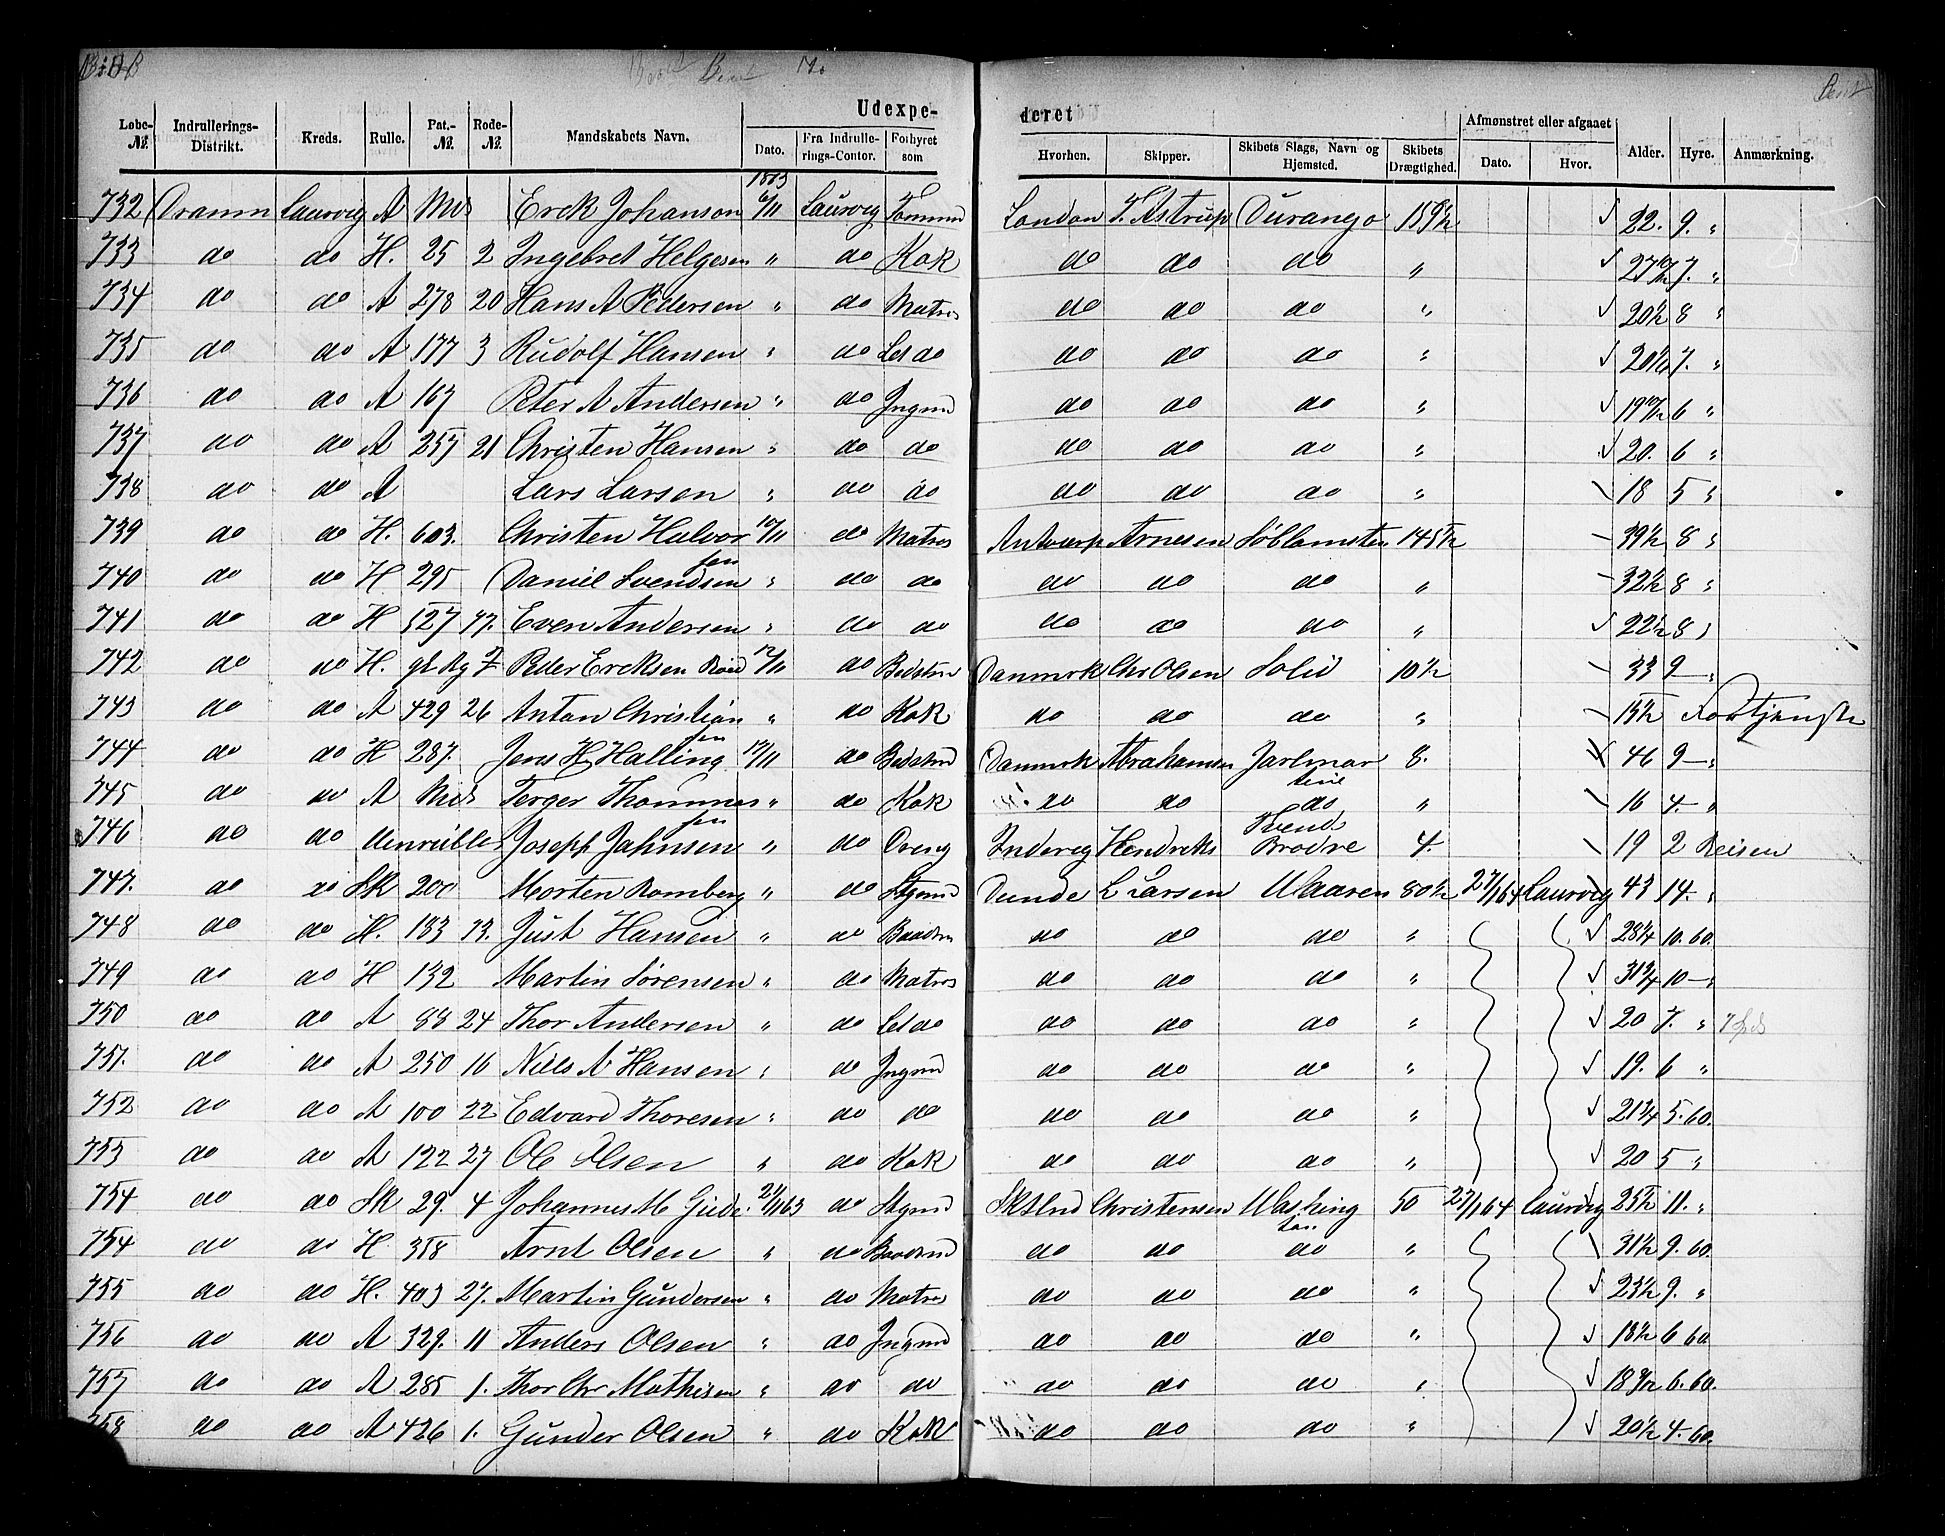 Udexpe- deret
Løbe-№. Indrullerings-Distrikt. Kreds. Rulle. Pat.-№. Rode-№. Mandskabets Navn. Dato. Fra Indrulle-rings-Contor. Forhyret som Hvorhen. Skipper. Skibets Slags, Navn og Hjemsted. Skibets Drægtighed. Afmønstret eller afgaaet Dato. Hvor. Alder. Hyre. Anmærkning.
1863
732 Dramm Laurvig A Mds Erck Johanson 6/11 Laurvig Tømmd London T. Astrup Durango 159½ 22. 9. "
733 do do H. 25 2 Ingebret Helgesen " do Kok do do do " 7. "
734 do do A 278 20 Hans A Pedersen " do Matros do do do " 20½ 8 "
735 do do A 177 3 Rudolf Hansen " do Let do do do do " 7. "
736 do do A 167 Peter A Andersen " do Jngmd do do do " 6 "
737 do do A 257 21 Christen Hansen " do do do do do " 20. 6 "
738 do do A Lars Larsen " do do do do do " 18 5 "
739 do do H. 603. Christen Halvorsen 10/11 do Matros Antwerp Arnesen Søblomsten 145½ 39½ 8 "
740 do do H 295 Daniel Svendsen " do do do do do " 32½ 8 "
741 do do H 527 47. Even Andersen " do do do do do " 22½ 8 "
742 do do H. Peder Ercksen 12/11 do Bedstmd Danmrk Chr Olsen Solid 10½ 33 9 — "
743 do do A 429 26 Anton Christiansen " do Kok do do do " 15½ Fortjenste
744 do do H 287. Jens H Halling 12/11 do Bedstmd Danmrk Abrahamsen Jarlmar tine 8. 46 9 — "
745 do do A Mds Terger Thommessen " do Kok do do do " 16 4. "
746 do do Uenrulleret Joseph Jahnsen " do Joseph Jndevig Hendreks Trende Brødre 4. 19 2 Reisen
747. do do SK 200 Morten Romberg " do Stymd Dunde L Larsen Waaren 80½ 27/1 64 Laurvig 43 14. "
748 do do H. 183 13. Just Hansen " do Baadsm do do do " 28¼ 10. 60.
749 do do H 132 Martin Sørensen " do Matros do do do " 31¾ 10 — "
750 do do A 88 24 Thor Andersen " do Let do do do do " 20 7. "
751. do do A 250 16 Niels A Hansen " do Jngmd do do do " 19. 6 "
752 do do A 100 22 Edvard Thoresen " do do do do do " 21¼ 5. 60.
753 do do A 122 27 Ole Olsen " do Kok do do do " 20 5 "
754 do do SK 29. 4 Johannes M Gude. 21/11 63 do Stymd Sktlnd Christensen Washington 50 27/1 64 Laurvig 25½ 11. "
754 do do H. 358 Arnt Olsen " do Baadsmd do do do " 31½ 9. 60.
755 do do H. 403 27. Martin Gundersen " do Matros do do do " 23½ 9. "
756 do do A 329. 11 Anders Olsen " do Jngmd do do do " 18½ 6 60.
757 do do A 285 1. Thor Chr Mathisen " do do do do do " 6. 60.
758 do do A 426 1. Gunder Olsen " do Kok do do do " 20½ 4. 60.